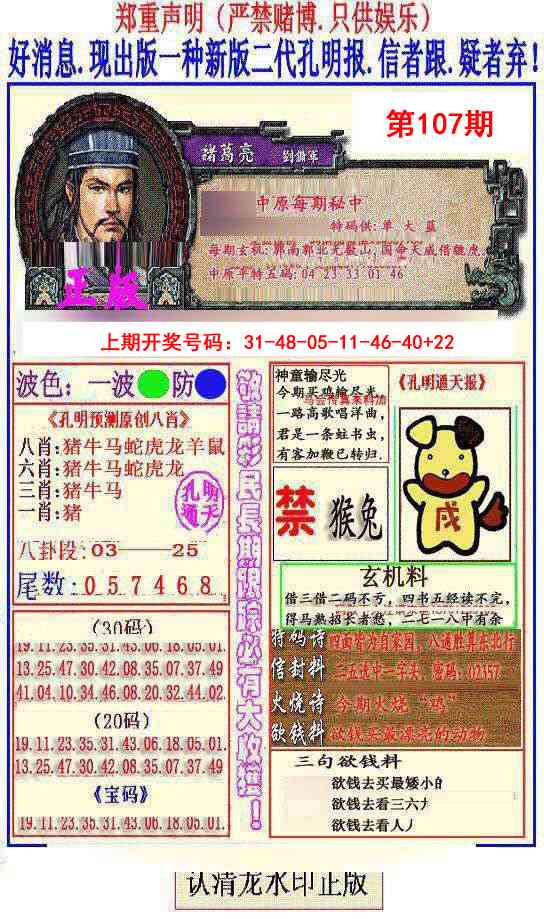 郑重声明（严禁赌博.只供娱乐）
好消息.现出版一种新版二代孔明报.信者跟.疑者弃!
第107期
諸葛亮 劉備軍
中原每期秘中
特码供:单大蓝
每期玄机:郭南郭北无歇山,国命天威借魏虎.
中原平特五码:04 23 33 01 46
正版
上期开奖号码：31-48-05-11-46-40+22
波色：一波 防
《孔明预测原创八肖》
八肖:猪牛马蛇虎龙羊鼠
六肖:猪牛马蛇虎龙
三肖:猪牛马
一肖:猪
孔明
通天
八卦段:03——25
尾数:057468
(30码)
19.11.23.35.31.43.06.18.05.01.
13.25.47.30.42.08.35.07.37.49
41.04.10.34.46.08.20.32.44.02
(20码)
19.11.23.35.31.43.06.18.05.01.
13.25.47.30.42.08.35.07.37.49
《宝码》
19.11.23.35.31.43.06.18.05.01.
敬請彩民長期跟踪必有大收獲！
神童输尽光
今期买鸡输尽光,
一路高歌唱洋曲,
君是一条蛀书虫,
有客加鞭已转归.
禁 猴兔
《孔明通天报》
戌
玄机料
借三借二码不亏，四书五经读不完,
得马熟招长者愁，二七一八中有余
特码诗 四面皆为自家国，八通胜算东北行
信封料 三五选中一字头，密碼：02357.
火烧诗 今期火烧“鸡”
欲钱料 欲钱买最漂亮的动物
三句欲钱料
欲钱去买最矮小的
欲钱去看三六
欲钱去看人
认清龙水印正版